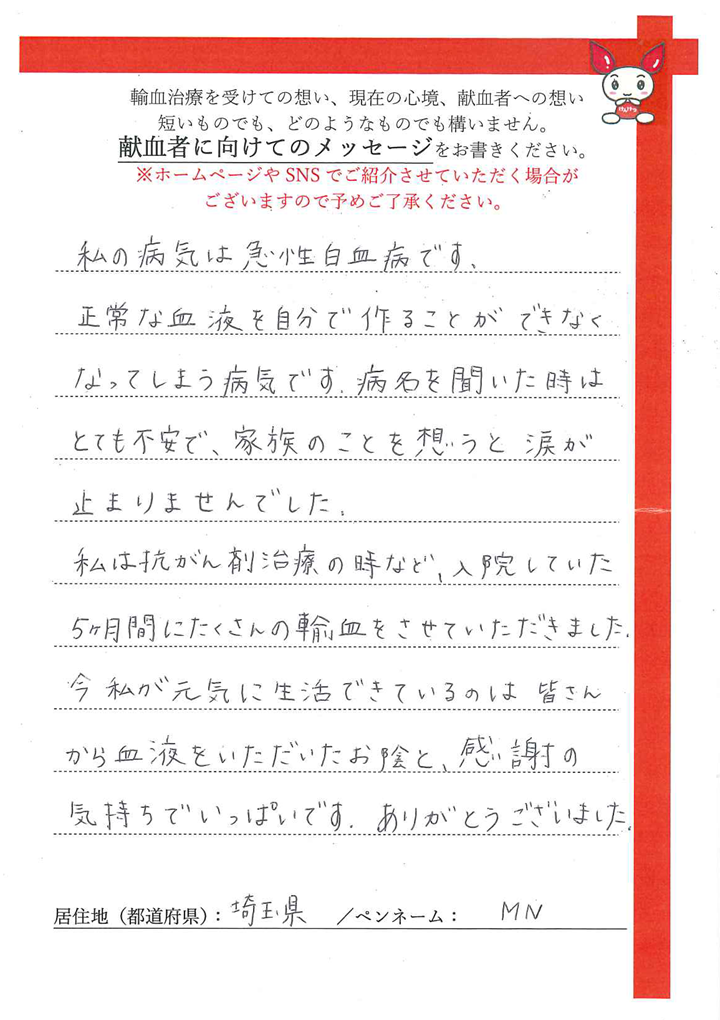 輸血治療を受けての想い、現在の心境、献血者への想い
短いものでも、どのようなものでも構いません。
献血者に向けてのメッセージをお書きください。
※ホームページや SNS でご紹介させていただく場合が
ございますので予めご了承ください。
私の病気は急性白血病です、
正常な血液を自分で作ることができなく
なってしまう病気です. 病名を聞いた時は
とても不安で、家族のことを想うと涙が
止まりませんでした.
私は抗がん剤治療の時など、入院していた
5ヶ月間にたくさんの輸血をさせていただきました.
今私が元気に生活できているのは皆さん
から血液をいただいたお陰と、感謝の
気持ちでいっぱいです. ありがとうございました.
居住地（都道府県）：埼玉県 ／ペンネーム： MN